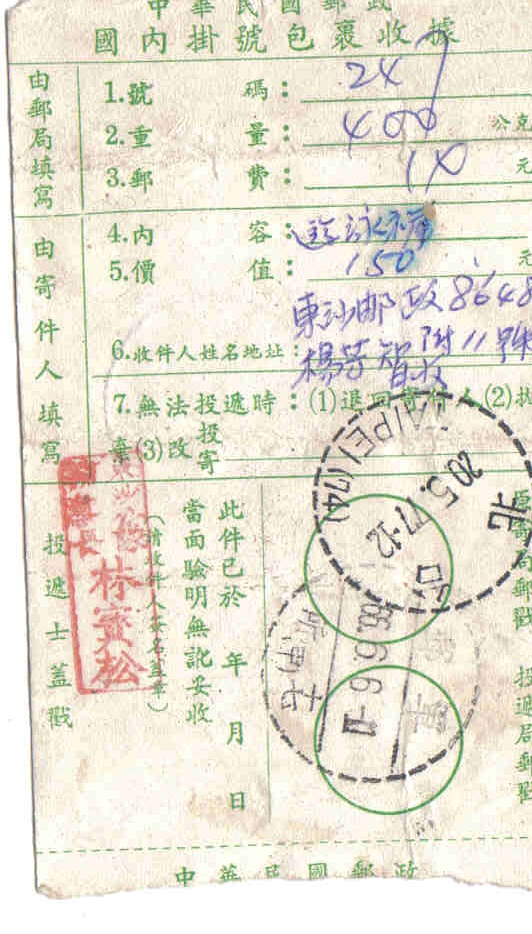 中華民國郵政
國內掛號包裹收據
由郵局填寫
1.號 碼：247
2.重 量：400 公克
3.郵 費：10 元
由寄件人填寫
4.內 容：游泳褲
5.價 值：150 元
6.收件人姓名地址：東沙郵政8648
附11號
楊芳智收
7.無法投遞時：(1)退回寄件人(2)拋
棄(3)改投寄
投遞士蓋戳
林賓松
此件已於 年 月 日
當面驗明無訛妥收
(請收件人簽名蓋章)
TAIPEI(74)
20.5.77-12
台北
68.6.6-11
郵戳
投遞局郵戳
中華民國郵政